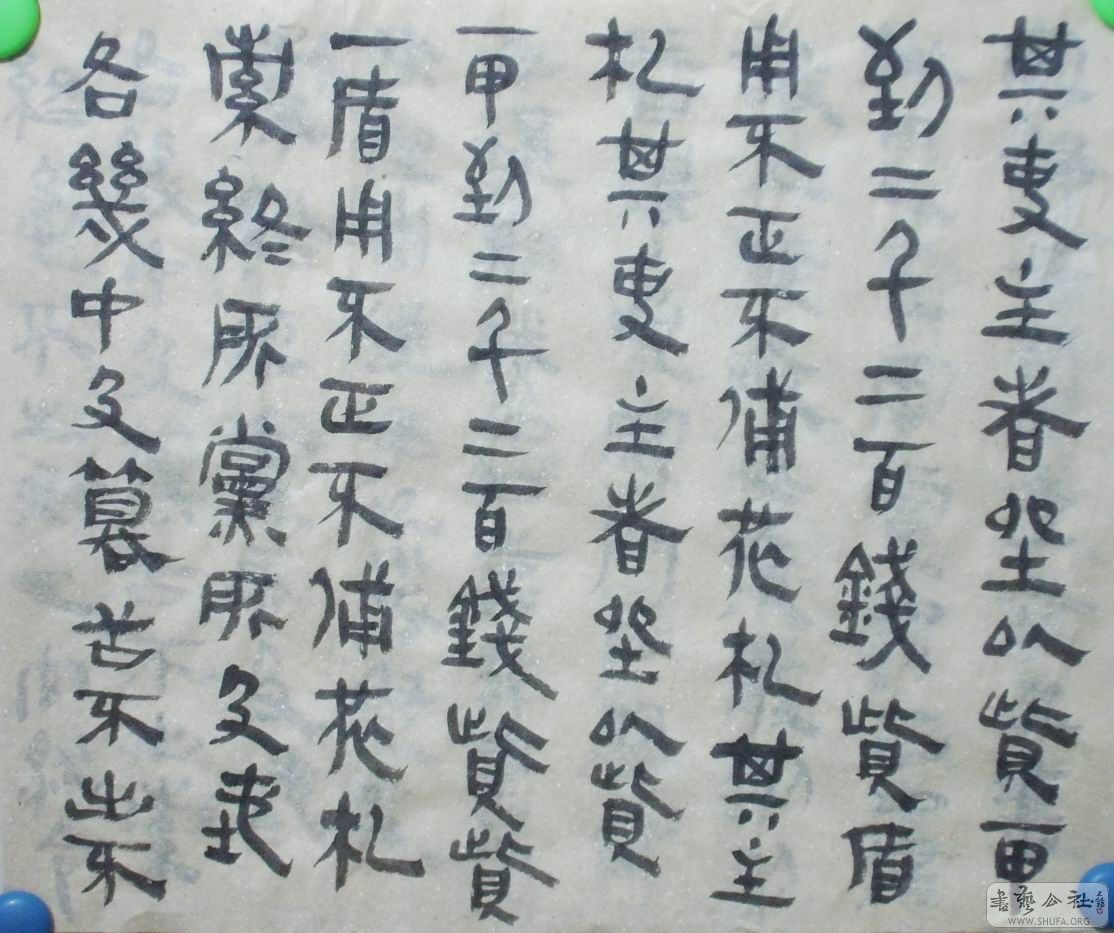 其吏主者坐以貲一甲
到二千二百錢貲盾
用不正不備花札其主
札其吏主者坐以貲
一甲到二千二百錢貲貲
一盾用不正不備花札
終所黨所久
各幾中久苦不出不
書藝公社
WWW.SHUFA.ORG